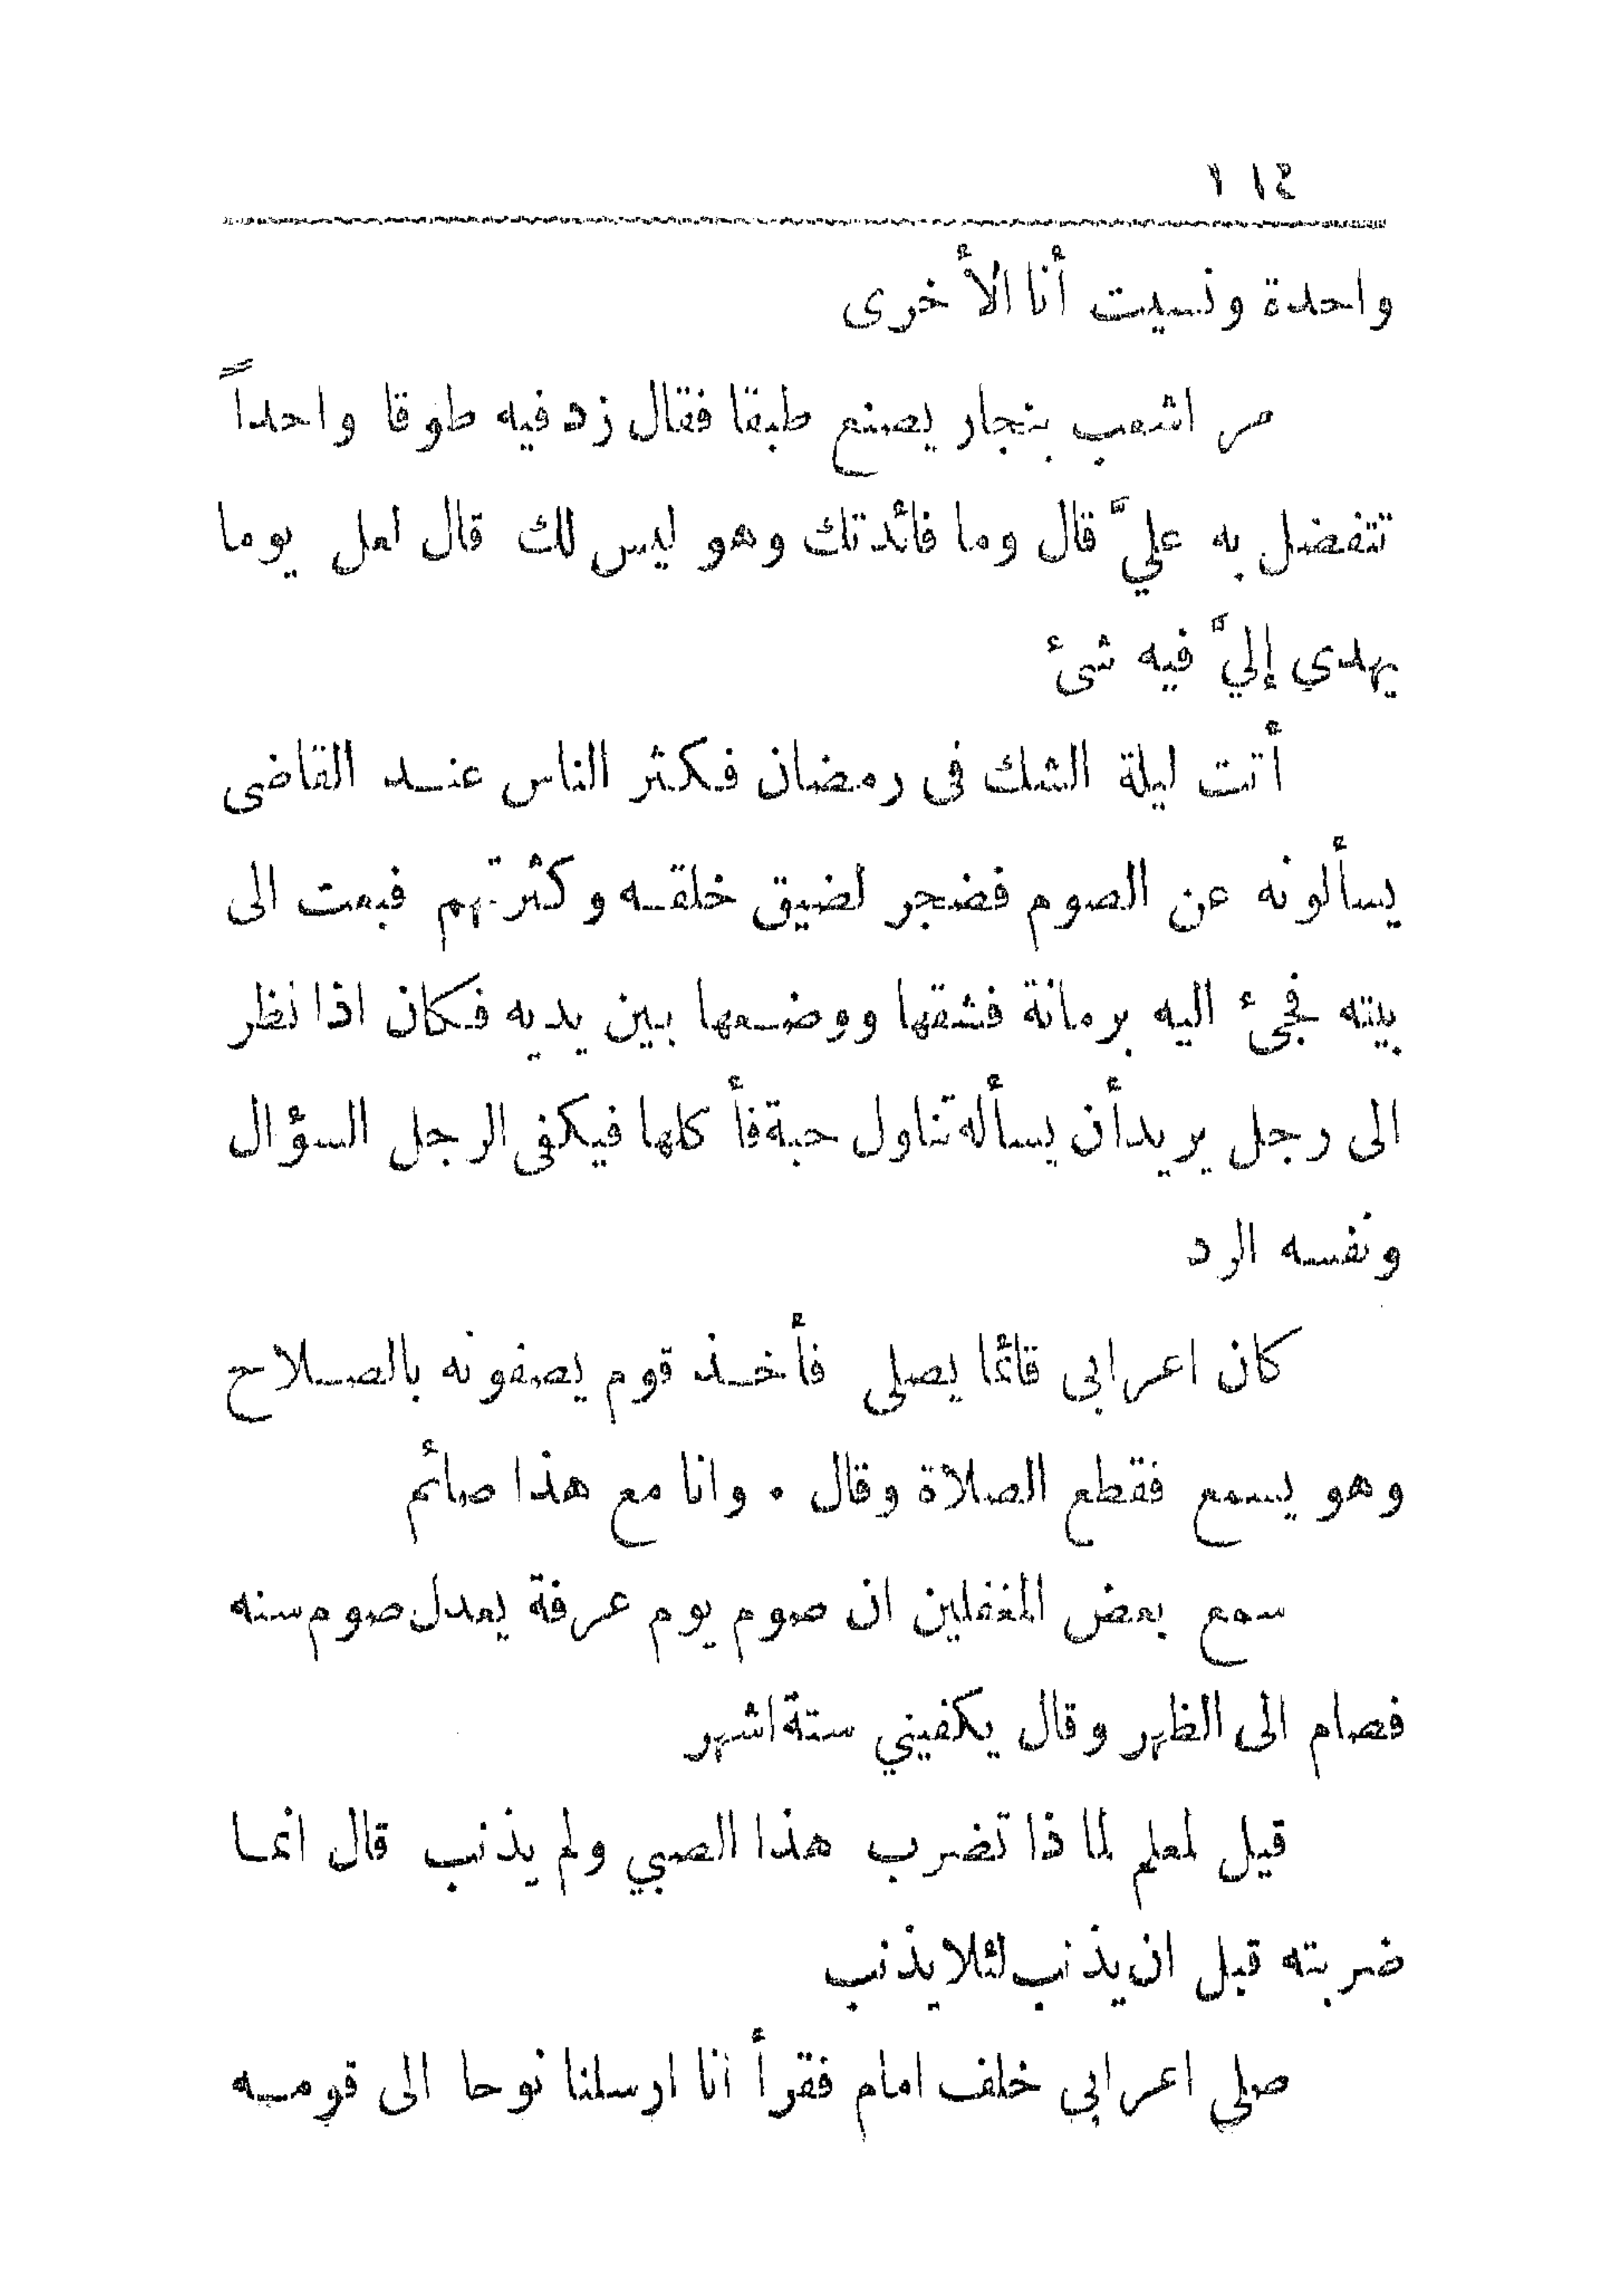 ١١٤
واحدة ونسيت أنا الأخرى
مر اشعب بنجار يصنع طبقا فقال زد فيه طوقا واحداً
تتفضل به عليَّ قال وما فائدتك وهو ليس لك قال لعل يوما
يهدي إليَّ فيه شئ
أتت ليلة الشك فى رمضان فكثر الناس عنـد القاضى
يسألونه عن الصوم فضجر لضيق خلقـه وكثرتهم فبعث الى
بيته فجىء اليه برمانة فشقها ووضـعها بين يديه فكان اذا نظر
الى رجل يريد أن يسأله تناول حبة فأكلها فيكفى الرجل السؤال
ونفسه الرد
كان اعرابى قائما يصلى فأخـذ قوم يصفونه بالصـلاح
وهو يسمع فقطع الصلاة وقال . وانا مع هذا صائم
سمع بعض المغفلين ان صوم يوم عرفة يعدل صوم سنه
فصام الى الظهر وقال يكفيني ستة اشهر
قيل لمعلم لماذا تضرب هذا الصبي ولم يذنب قال انمـا
ضربته قبل ان يذنب لئلا يذنب
صلى اعرابى خلف امام فقرأ انا ارسلنا نوحا الى قومـه